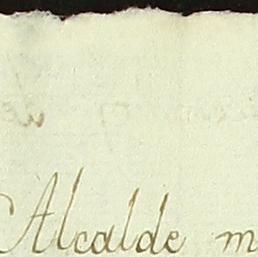 Alcalde m